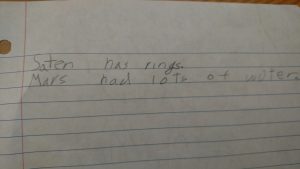 Saten has rings.
Mars had lots of water.